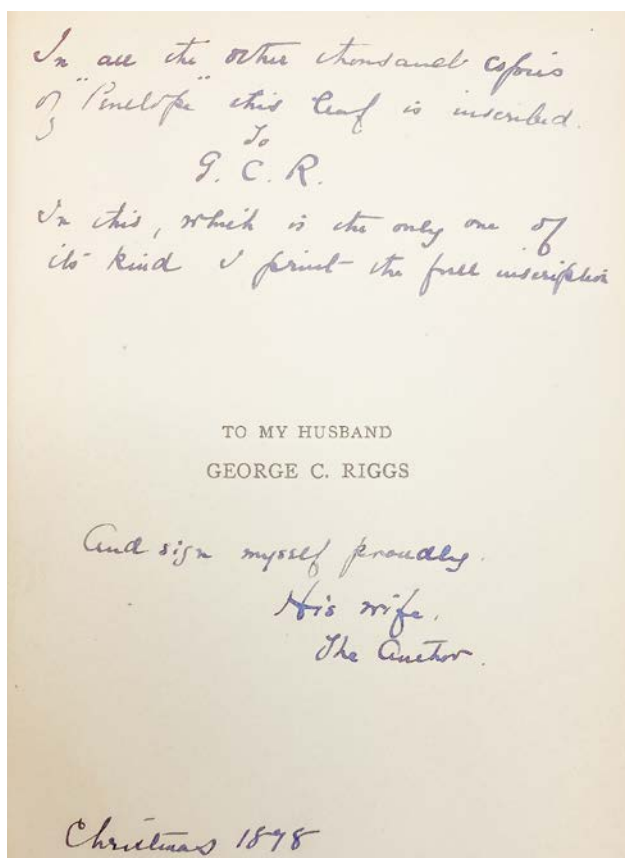 In all the other thousand copies
of "Penelope" this leaf is inscribed.
To
G. C. R.
In this, which is the only one of
its kind I print the full inscription
TO MY HUSBAND
GEORGE C. RIGGS
And sign myself proudly.
His wife.
The Author.
Christmas 1898